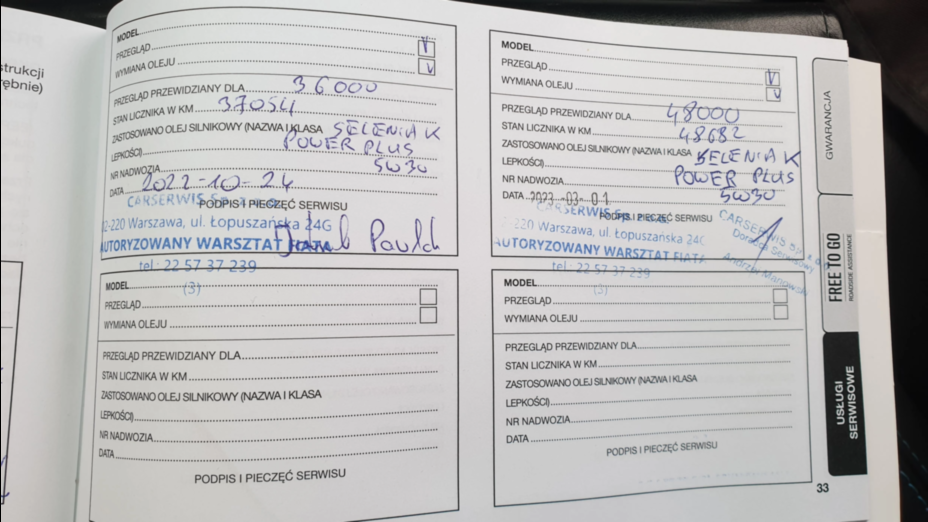 strukcji
ębnie)
MODEL
PRZEGLĄD V
WYMIANA OLEJU V
PRZEGLĄD PRZEWIDZIANY DLA 36000
STAN LICZNIKA W KM 37054
ZASTOSOWANO OLEJ SILNIKOWY (NAZWA I KLASA SELENIA K
LEPKOŚCI) POWER PLUS
NR NADWOZIA 5W30
DATA 2022-10-24
PODPIS I PIECZĘĆ SERWISU
CARSERWIS Sp. z o.o.
02-220 Warszawa, ul. Łopuszańska 24G
AUTORYZOWANY WARSZTAT FIATA
tel.: 22 57 37 239
(3)
MODEL
PRZEGLĄD V
WYMIANA OLEJU V
PRZEGLĄD PRZEWIDZIANY DLA 48000
STAN LICZNIKA W KM 48682
ZASTOSOWANO OLEJ SILNIKOWY (NAZWA I KLASA SELENIA K
LEPKOŚCI) POWER PLUS
NR NADWOZIA 5W30
DATA 2023-03-01
PODPIS I PIECZĘĆ SERWISU
CARSERWIS Sp. z o.o.
02-220 Warszawa, ul. Łopuszańska 24G
AUTORYZOWANY WARSZTAT FIATA
tel.: 22 57 37 239
(3)
CARSERWIS Sp. z o.o.
Doradca Serwisowy
Andrzej Manowski
MODEL
PRZEGLĄD
WYMIANA OLEJU
PRZEGLĄD PRZEWIDZIANY DLA
STAN LICZNIKA W KM
ZASTOSOWANO OLEJ SILNIKOWY (NAZWA I KLASA
LEPKOŚCI)
NR NADWOZIA
DATA
PODPIS I PIECZĘĆ SERWISU
MODEL
PRZEGLĄD
WYMIANA OLEJU
PRZEGLĄD PRZEWIDZIANY DLA
STAN LICZNIKA W KM
ZASTOSOWANO OLEJ SILNIKOWY (NAZWA I KLASA
LEPKOŚCI)
NR NADWOZIA
DATA
PODPIS I PIECZĘĆ SERWISU
GWARANCJA
FREE TO GO
ROADSIDE ASSISTANCE
USŁUGI
SERWISOWE
33